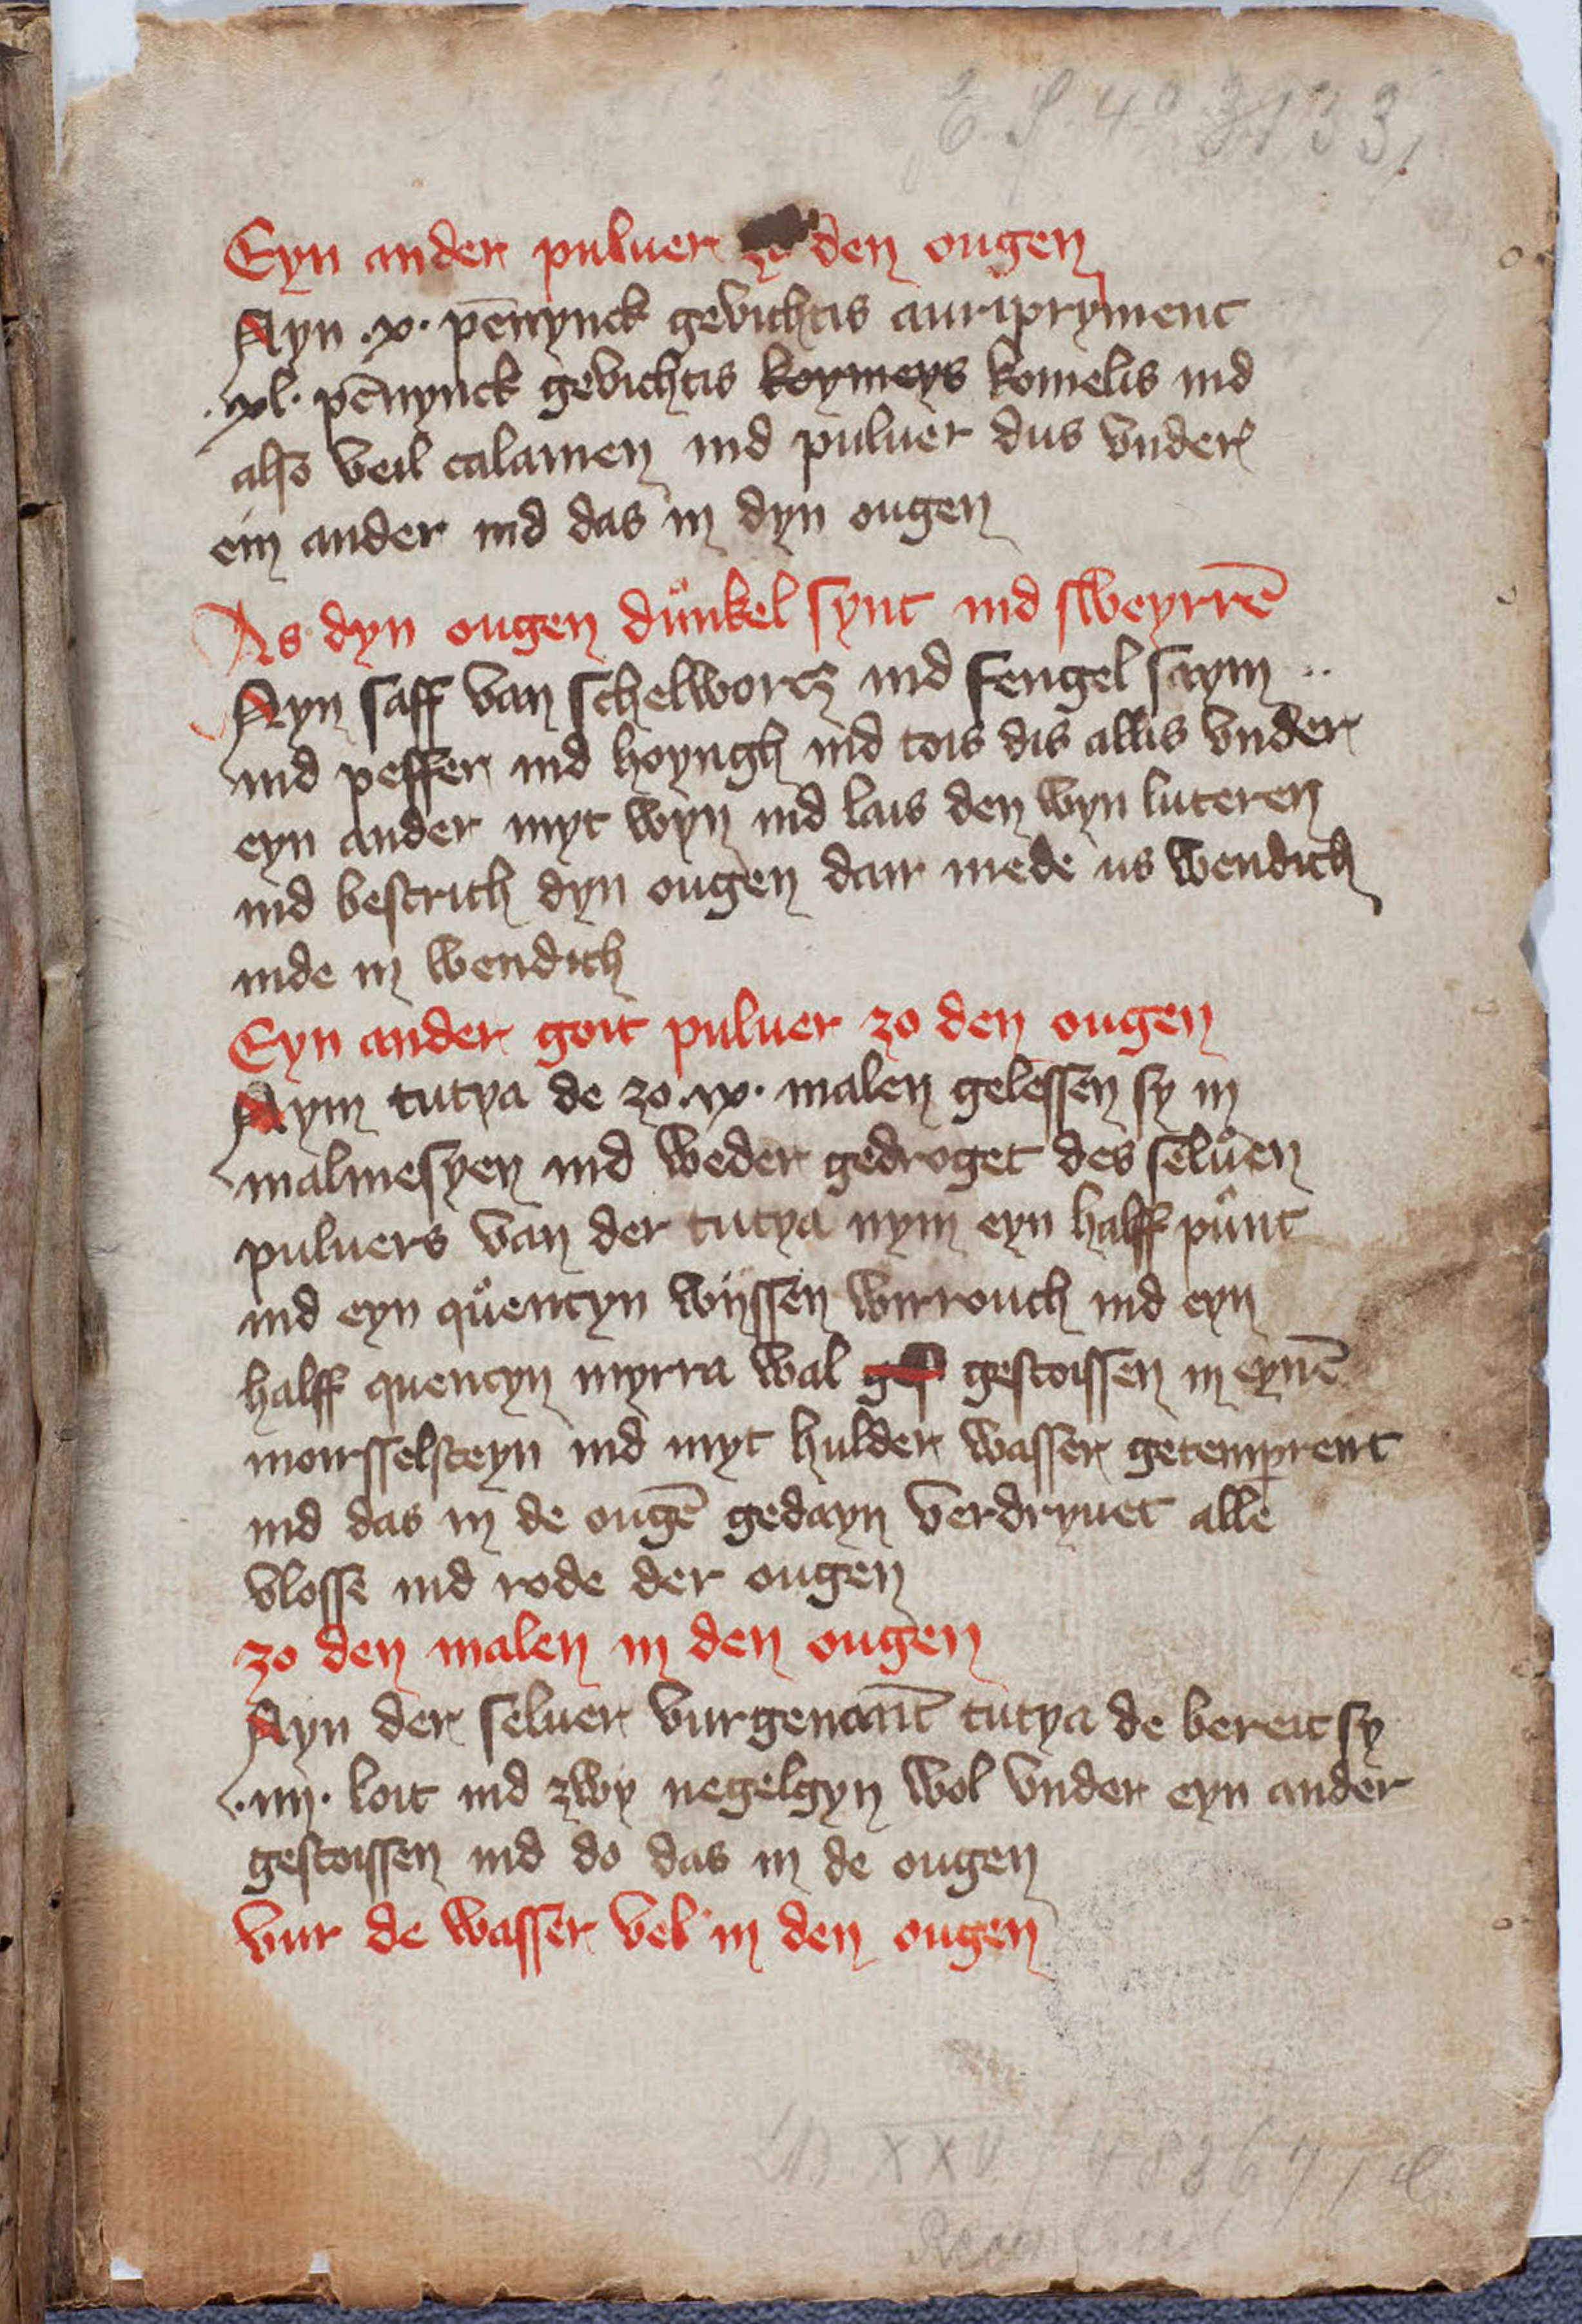 E. S. 4° 3133,
Eyn ander puluer zo den ougen
Nym .x. pēnynck gevichtis auripryment
.xl. pēnynck gevichtis koymeys komelis ind
also veil calamen ind puluer dus vnder
ein ander ind das in dyn ougen
As dyn ougen důnkel synt ind sweyrrē
Nym saff van schelwortz ind fengel saym
ind peffer ind hoyngh ind tois dis allis vnder
eyn ander myt wyn ind lais den wyn luteren
ind bestrich dyn ougen dair mede us wendich
inde in wendich
Eyn ander goit puluer zo den ougen
Nym tutya de zo .ix. malen gelessen sy in
malmesyen ind weder gedroget des seluen
puluers van der tutya nym eyn halff půnt
ind eyn quentyn wijssen wirrouch ind eyn
halff quentyn myrra wal gestoissen in eynē
moirsselsteyn ind myt hulder wasser getemprent
ind das in de ougē gedayn verdryuet alle
vlosse ind rode der ougen
zo den malen in den ougen
Nym der seluer vurgenant tutya de bereit sy
.iiij. loit ind zwy negelgyn wol vnder eyn ander
gestoissen ind do das in de ougen
vur de wasser vel in den ougen
XXV / 48367